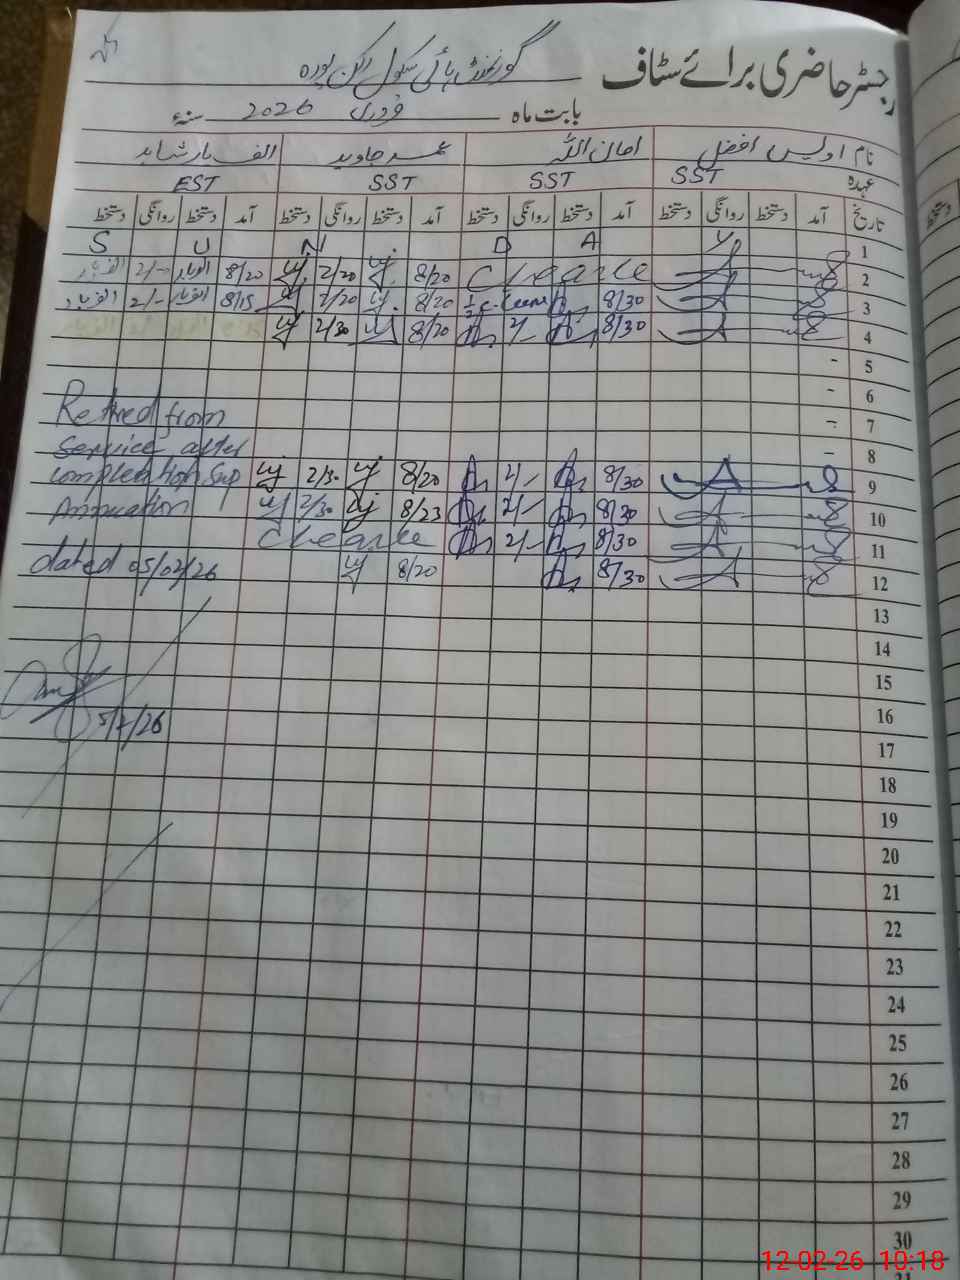 رجسٹر حاضری برائے سٹاف گورنمنٹ ہائی سکول رکن پورہ
بابت ماہ فروری 2026 سنہ
نام اویس افضل امان اللہ محمد جاوید الف یار شاہد
عہدہ SST SST SST EST
تاریخ آمد دستخط روانگی دستخط آمد دستخط روانگی دستخط آمد دستخط روانگی دستخط آمد دستخط روانگی دستخط
1 S U N D A Y
2 8/20 2/20 8/20 2/-
3 8/30 8/20 2/20 8/15 2/-
4 8/30 2/- 8/20 2/30
5 -
6 -
7 -
8 -
Retired from
Service after
9 8/30 2/- 8/20 2/30 completion Sup
10 8/30 2/- 8/23 2/30 Annuation
11 8/30 2/-
12 8/30 8/20 dated 05/02/26
13
14
15
16 5/2/26
17
18
19
20
21
22
23
24
25
26
27
28
29
30
31
12-02-26 10:18